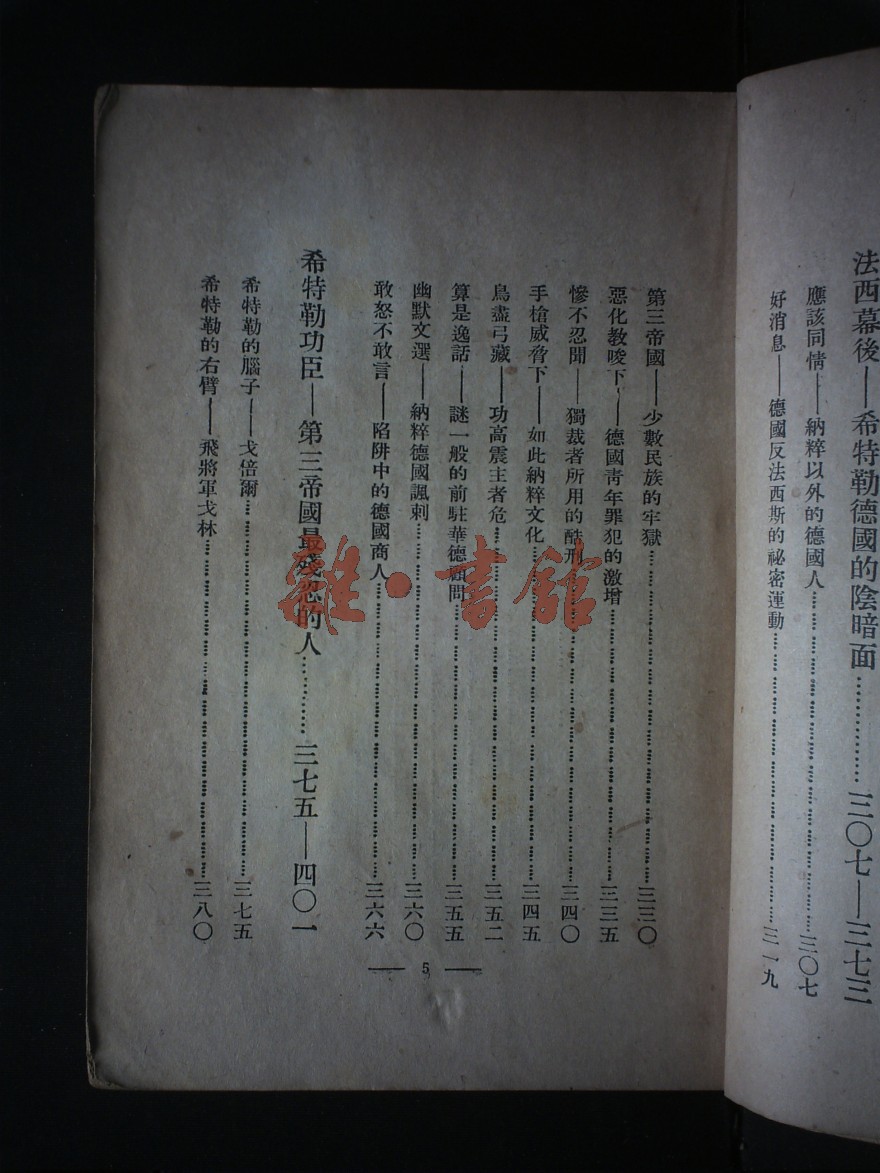 法西幕後——希特勒德國的陰暗面…………三〇七——三七三
應該同情——納粹以外的德國人…………三〇七
好消息——德國反法西斯的祕密運動…………三一九
第三帝國——少數民族的牢獄…………三三〇
惡化教唆下——德國靑年罪犯的激增…………三三五
慘不忍聞——獨裁者所用的酷刑…………三四〇
手槍威脅下——如此納粹文化…………三四五
鳥盡弓藏——功高震主者危…………三五二
算是逸話——謎一般的前駐華德顧問…………三五五
幽默文選——納粹德國諷刺…………三六〇
敢怒不敢言——陷阱中的德國商人…………三六六
希特勒功臣——第三帝國最殘忍的人…………三七五——四〇一
希特勒的腦子——戈倍爾…………三七五
希特勒的右臂——飛將軍戈林…………三八〇
— 5 —
雜·書館